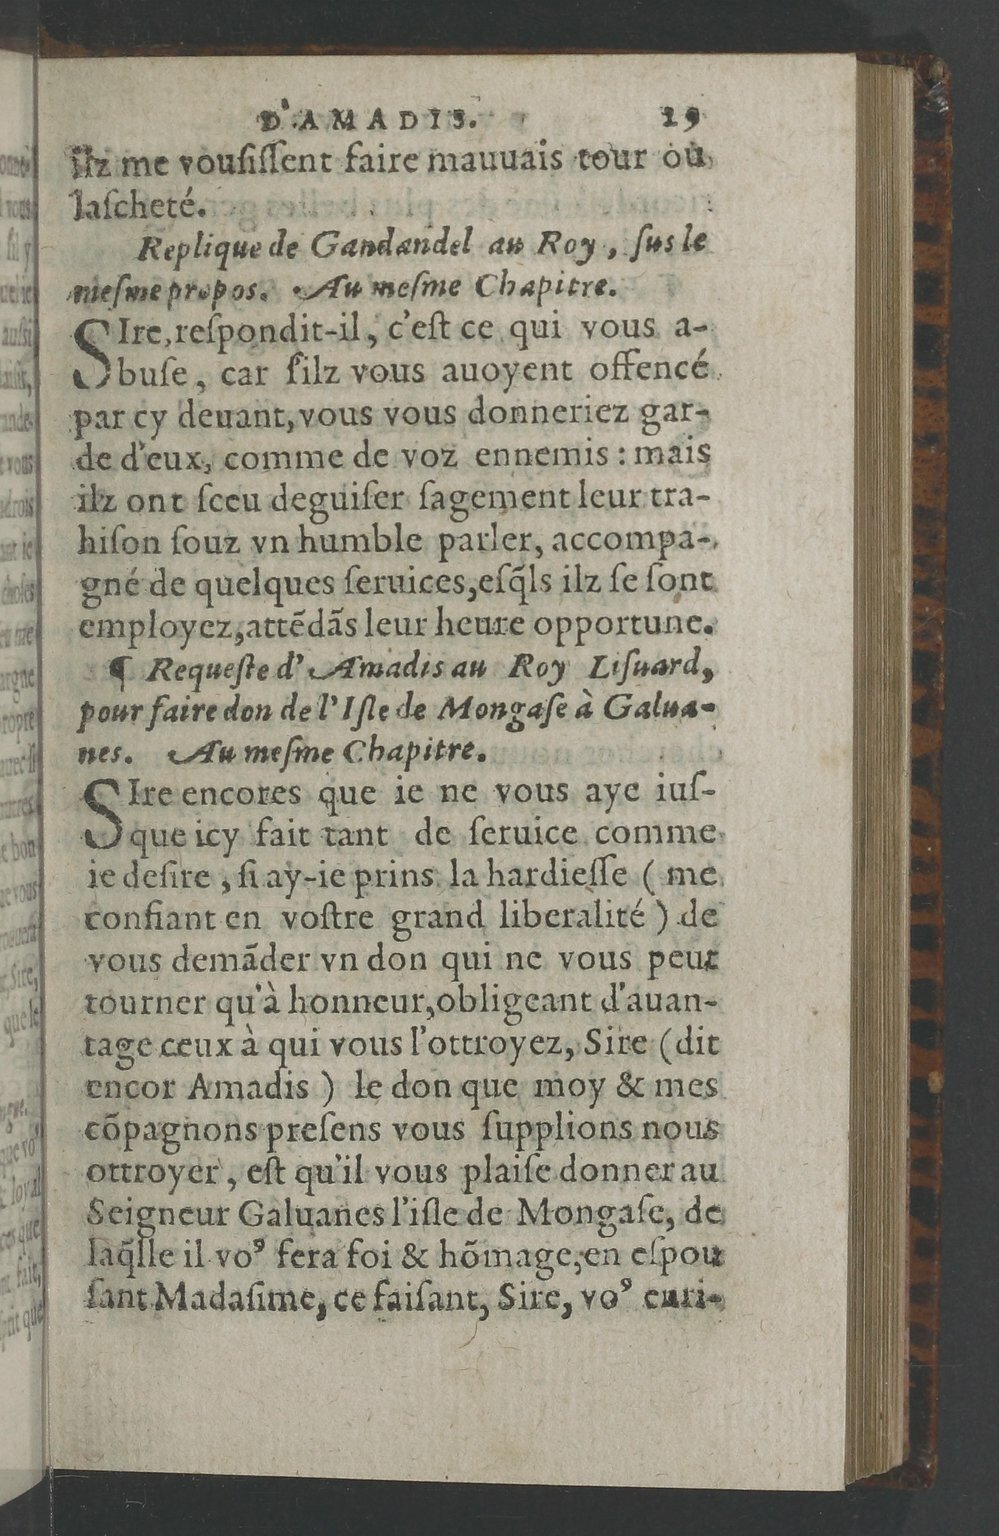 D'AMADIS. 19
ilz me vouſiſſent faire mauuais tour ou
laſcheté.
Replique de Gandandel au Roy, ſus le
meſme propos. Au meſme Chapitre.
SIre, reſpondit-il, c'eſt ce qui vous a-
buſe, car ſilz vous auoyent offencé
par cy deuant, vous vous donneriez gar-
de d'eux, comme de voz ennemis : mais
ilz ont ſceu deguiſer ſagement leur tra-
hiſon ſouz vn humble parler, accompa-
gné de quelques ſeruices, eſq̃ls ilz ſe ſont
employez, attẽdãs leur heure opportune.
¶ Requeſte d'Amadis au Roy Liſuard,
pour faire don de l'Iſle de Mongaſe à Galua-
nes. Au meſme Chapitre.
SIre encores que ie ne vous aye iuſ-
que icy fait tant de ſeruice comme
ie deſire, ſi ay-ie prins la hardieſſe ( me
confiant en voſtre grand liberalité ) de
vous demãder vn don qui ne vous peut
tourner qu'à honneur, obligeant d'auan-
tage ceux à qui vous l'ottroyez, Sire (dit
encor Amadis ) le don que moy & mes
cõpagnons preſens vous ſupplions nous
ottroyer, eſt qu'il vous plaiſe donner au
Seigneur Galuanes l'iſle de Mongaſe, de
laq̃lle il voꝰ fera foi & hõmage, en eſpou
ſant Madaſime, ce faiſant, Sire, voꝰ enri-